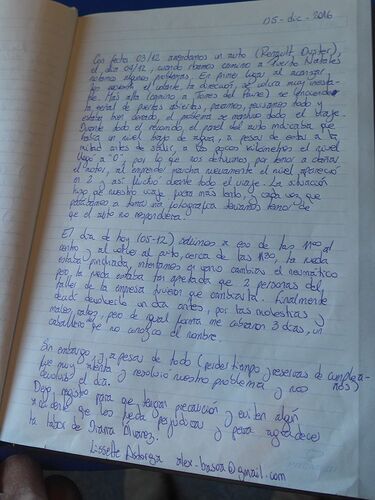 05-dic-2016
Con fecha 03/12 arrendamos un auto (Renault Duster),
el día 04/12, cuando íbamos camino a Puerto Natales
notamos algunos problemas. En primer lugar al avanzar
por pavimento el volante, la dirección, se volvía muy inestable.
Más allá (camino a Torres del Paine) se encendió
la señal de puertas abiertas, paramos, revisamos todo y
estaba bien cerrado, el problema se mantuvo todo el viaje.
Durante todo el recorrido, el panel del auto indicaba que
había un nivel bajo de agua, a pesar de en la
ciudad antes de salir, a los pocos kilómetros el nivel
llegó a "0", por lo que nos detuvimos, por temor a dañar
el motor, al emprender marcha nuevamente el nivel apareció
en 2 y así fluctuó durante todo el viaje. La situación
hizo de nuestro viaje fuera más lento, y cada vez que
parábamos a tomar una fotografía teníamos temor de
que el auto no respondiera.
El día de hoy (05-12) salimos a eso de las 11:00 al
centro y al volver al auto, cerca de las 11:30, la rueda
estaba pinchada, intentamos cambiar el neumático
pero, la rueda estaba tan apretada que 2 personas del
taller de la empresa tuvieron que cambiarla. Finalmente
decidí devolverlo un día antes, por las molestias y
malos ratos, pero de igual forma me cobraron 3 días, un
caballero que no conozco el nombre.
Sin embargo, y a pesar de todo (perder tiempo y reservas de cumpleaños)
fue muy atenta y resolvió nuestro problema y nos
devolvió el día.
Dejo registro para que tengan precaución y eviten algún
accidente que los pueda perjudicar y para agradecer
la labor de Diana Álvarez.
Lissette